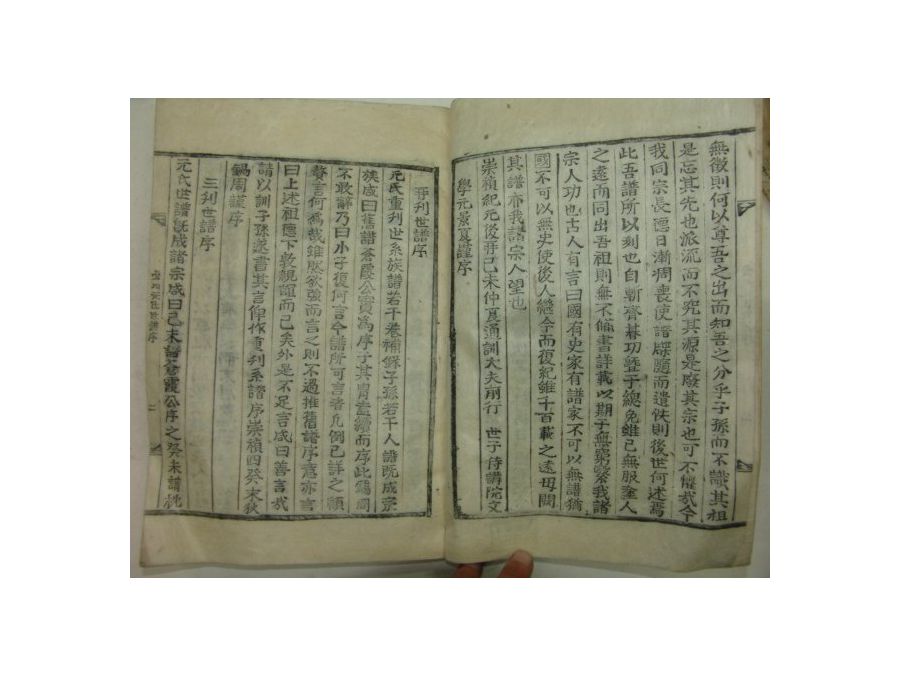 無徵則何以尊吾之出而知吾之分乎子孫而不識其祖
是忘其先也派流而不究其源是廢其宗也可不懼哉今
我同宗長德日漸凋喪使譜牒隨而遺佚則後世何述焉
此吾譜所以刻也自斬齊朞功曁于緦免雖已無服塗人
之遠而同出吾祖則無不備書詳載以期于無窮繄我諸
宗人功也古人有言曰國有史家有譜家不可以無譜猶
國不可以無史使後人繼今而復紀雖千百載之遠毋闕
其譜亦我諸宗人望也
崇禎紀元後再己未仲夏通訓大夫前行 世子侍講院文
學元景夏謹序
再刊世譜序
元氏重刊世系族譜若干卷補錄子孫若干人譜旣成宗
族咸曰舊譜蒼霞公實爲序子其胄盍續而序此錫周
不敢辭乃曰小子復何言今譜所可言者凡例已詳之顧
贅言何爲哉雖然欲強而言之則不過推舊譜序意亦言
曰上述祖德下敦親誼而已矣外是不足言咸曰善言哉
請以訓子孫遂書其言仰作重刊系譜序崇禎四癸未狄
錫周謹序
三刊世譜序
元氏世譜旣成諸宗咸曰己未譜蒼霞公序之癸未譜